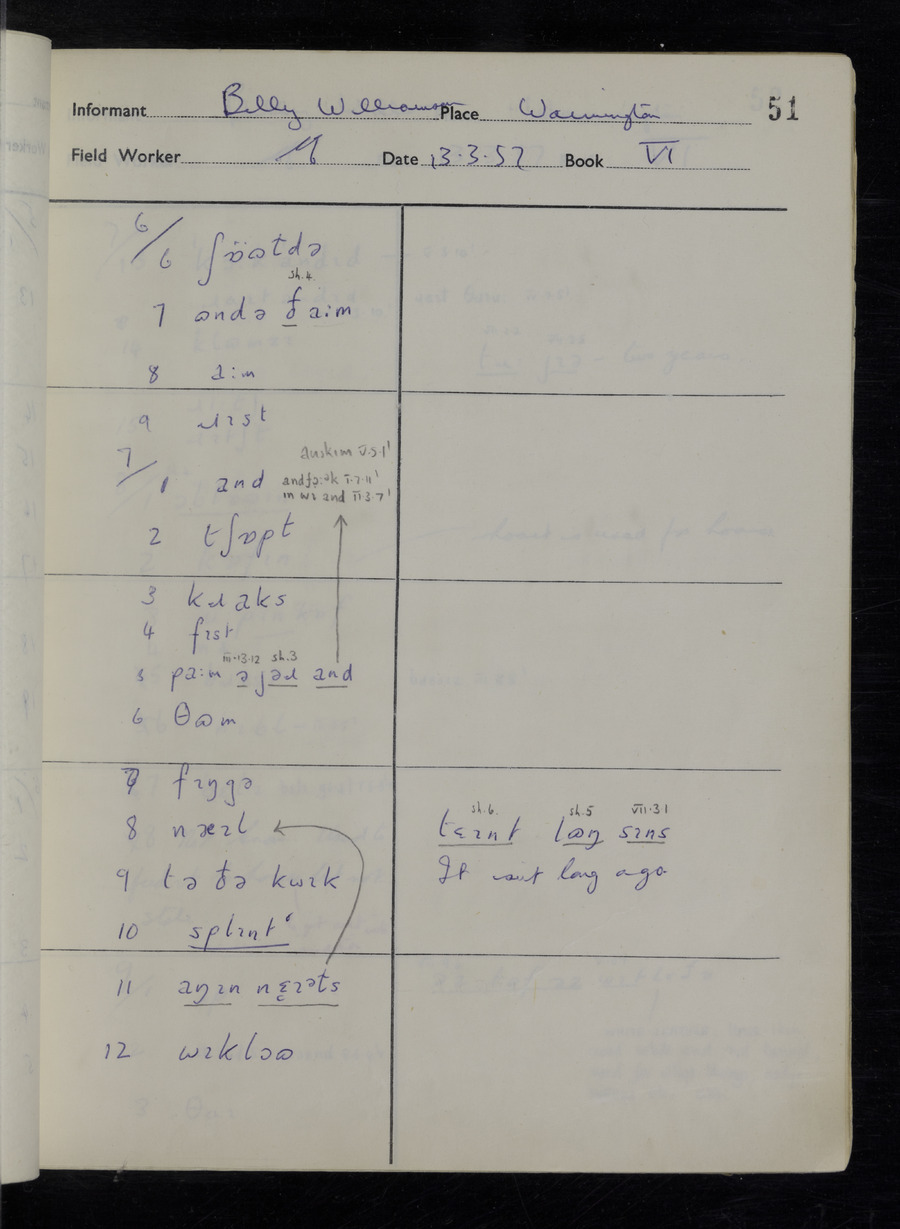 Informant Billy Williamson Place Warmington 51
Field Worker Date 13.3.57 Book VI
6/6 ʃɒ̈ɷtdə
sh.4
7 ɷndə ðaːm
8 aːm
9 ɹɪst
7/1 and
auskɪm V.5.1'
I.7.11'
ɪn wɪ and II.3.7'
2 tʃɒpt
3 kɹaks
4 fɪst
III.13.12 sh.3
5 paːm ə jəɹ and
6 θɷm
7 fɪŋgə
8 næɪl
9 tə ðə kwɪk
10 splɪnt'
11 aŋɪn nɛɪəts
12 wɪkləɷ
sh.6 sh.5 VII.3.1
tɛɪnt lɒŋ sɪns
It isn't long ago